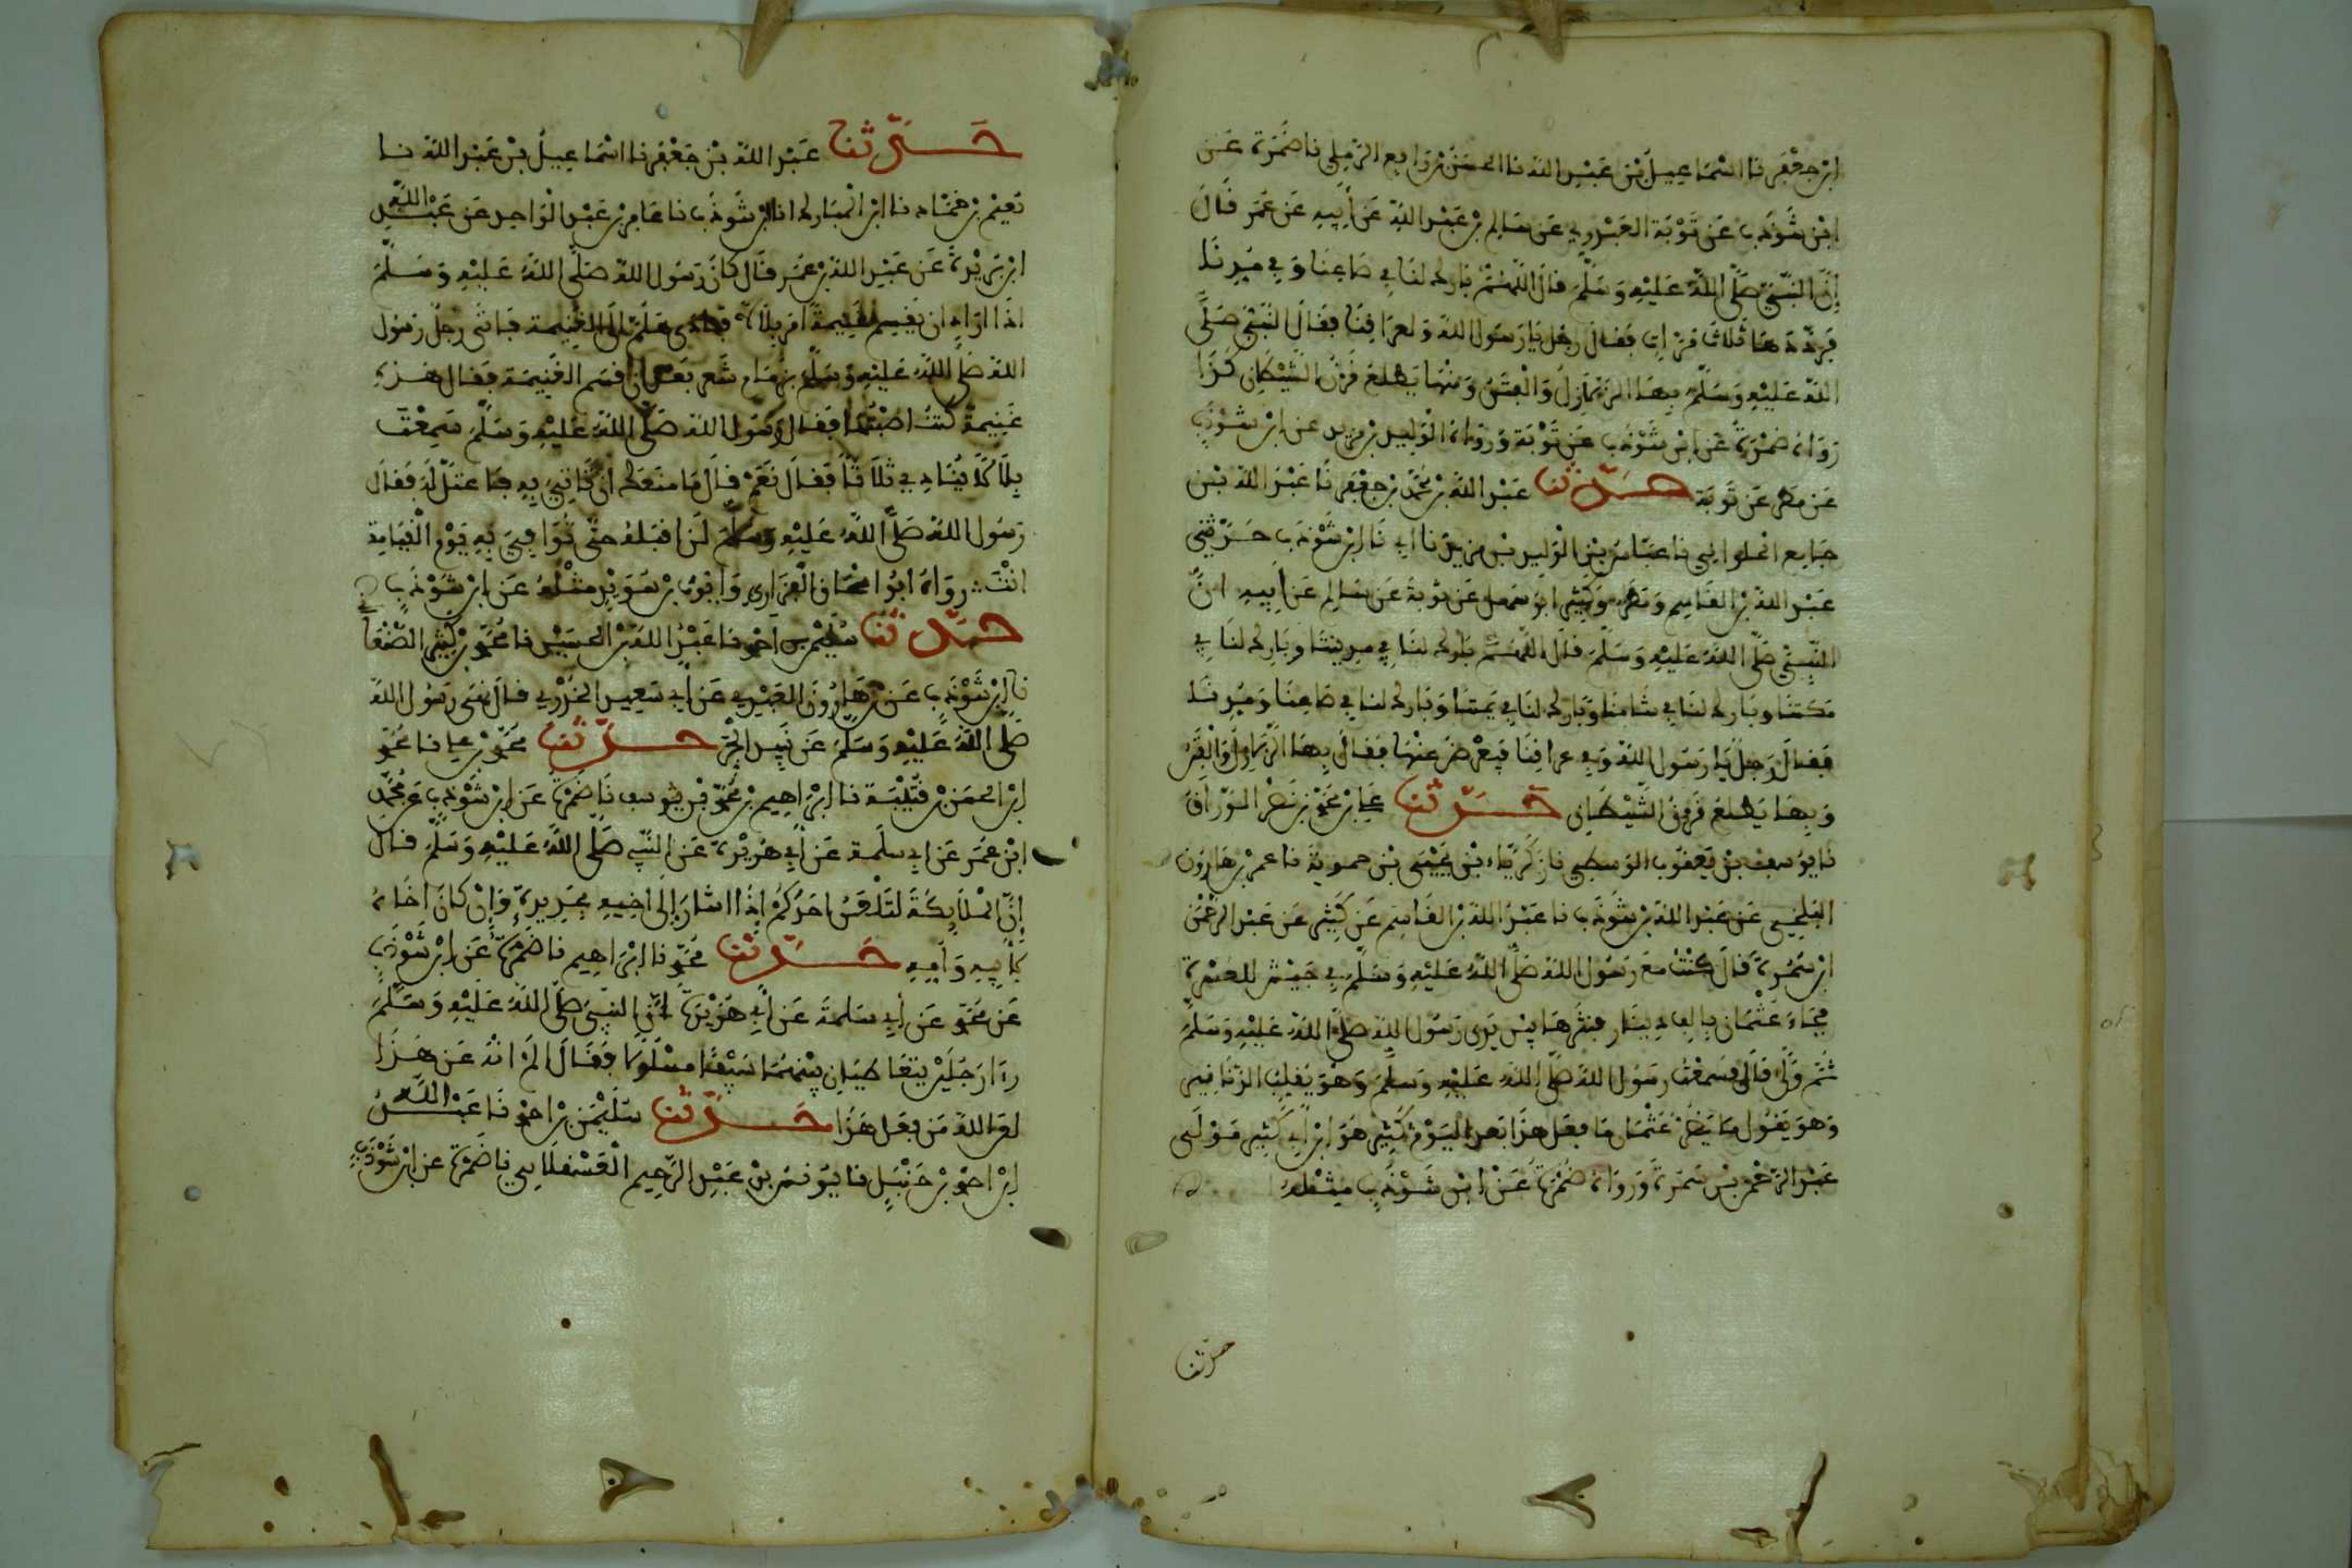 ابن جعفر نا اسماعيل بن عبد الله نا الحسن بن رافع الرملي نا ضمرة عن
ابن شوذب عن توبة العنبري عن سالم بن عبد الله عن أبيه عن عمر قال
إن النبي صلى الله عليه وسلم قال اللهم بارك لنا في صاعنا وفي مدنا
فرددها ثلاث مرات فقال رجل يا رسول الله ولعراقنا فقال النبي صلى
الله عليه وسلم بها الزلازل والفتن ومنها يطلع قرن الشيطان كذا
رواه ضمرة عن ابن شوذب عن توبة ورواه الوليد بن مزيد عن ابن شوذب
عن مطر عن توبة حدثنا عبد الله بن محمد بن جعفر نا عبد الله بن
جامع الحلواني نا عباس بن الوليد بن مزيد نا ابي نا ابن شوذب حدثني
عبد الله بن القاسم ومطر وكثير ابو سهل عن توبة عن سالم عن أبيه ان
النبي صلى الله عليه وسلم قال اللهم بارك لنا في مدينتنا وبارك لنا في
مكتنا وبارك لنا في شامنا وبارك لنا في يمننا وبارك لنا في صاعنا ومدنا
فقال رجل يا رسول الله وفي عراقنا فيعرض عنها فقال بها الزلازل والفتن
وبها يطلع قرن الشيطان حدثنا علي بن محمد بن نصر الوراق
نا يوسف بن يعقوب الوسطي نا زكرياء بن يحيى بن حموية نا عمر بن هارون
البلخي عن عبد الله بن شوذب نا عبد الله بن القاسم عن كثير عن عبد الرحمن
ابن سمرة قال كنت مع رسول الله صلى الله عليه وسلم في جيش العسرة
فجاء عثمان بالف دينار فنثرها بين يدي رسول الله صلى الله عليه وسلم
ثم ولى قال فسمعت رسول الله صلى الله عليه وسلم وهو يقلب الدنانير
وهو يقول ما يضر عثمان ما فعل هذا بعد اليوم كثير هو ابن أبي كثير مولى
عبد الرحمن بن سمرة ورواه ضمرة عن ابن شوذب مثله
حدثنا
حدثنا عبد الله بن جعفر نا اسماعيل بن عبد الله نا
نعيم بن حماد نا ابن المبارك انا ابن شوذب نا عامر بن عبد الواحد عن عبد الله
ابن بريدة عن عبد الله بن عمر قال كان رسول الله صلى الله عليه وسلم
اذا اراد ان يقسم غنيمة امر بلالا فنادى الغنيمة فاتى رجل رسول
الله صلى الله عليه وسلم بزمام شعر بعد ان قسم الغنيمة فقال هذه
غنيمة كنت اصبتها فقال رسول الله صلى الله عليه وسلم سمعت
بلالا ينادي ثلاثا فقال نعم قال ما منعك ان تاتي به فاعتل له فقال
رسول الله صلى الله عليه وسلم لن اقبله حتى توافي به يوم القيامة
انت رواه ابو اسحاق الفزاري وايوب بن سويد مثله عن ابن شوذب
حدثنا سليمان بن احمد نا عبد الله بن الحسين نا محمد بن كثير الصنعا
نا ابن شوذب عن هارون العبدي عن أبي سعيد الخدري قال نهى رسول الله
صلى الله عليه وسلم عن نبيذ الجر حدثنا محمد بن علي نا محمد
ابن الحسن بن قتيبة نا ابراهيم بن محمد بن يوسف نا ضمرة عن ابن شوذب عن محمد
ابن عمر عن ابي سلمة عن أبي هريرة عن النبي صلى الله عليه وسلم قال
إن الملايكة لتلعن احدكم إذا اشار إلى اخيه بحديدة وإن كان اخاه
لابيه وأمه حدثنا محمد نا ابراهيم نا ضمرة عن ابن شوذب
عن محمد عن أبي سلمة عن أبي هريرة أن النبي صلى الله عليه وسلم
رءا رجلين يتعاطيان بينهما سيفا مسلولا فقال الم انه عن هذا
لعن الله من فعل هذا حدثنا سليمان بن احمد نا عبد الله
ابن احمد بن حنبل نا يونس بن عبد الرحيم العسقلاني نا ضمرة عن ابن شوذب